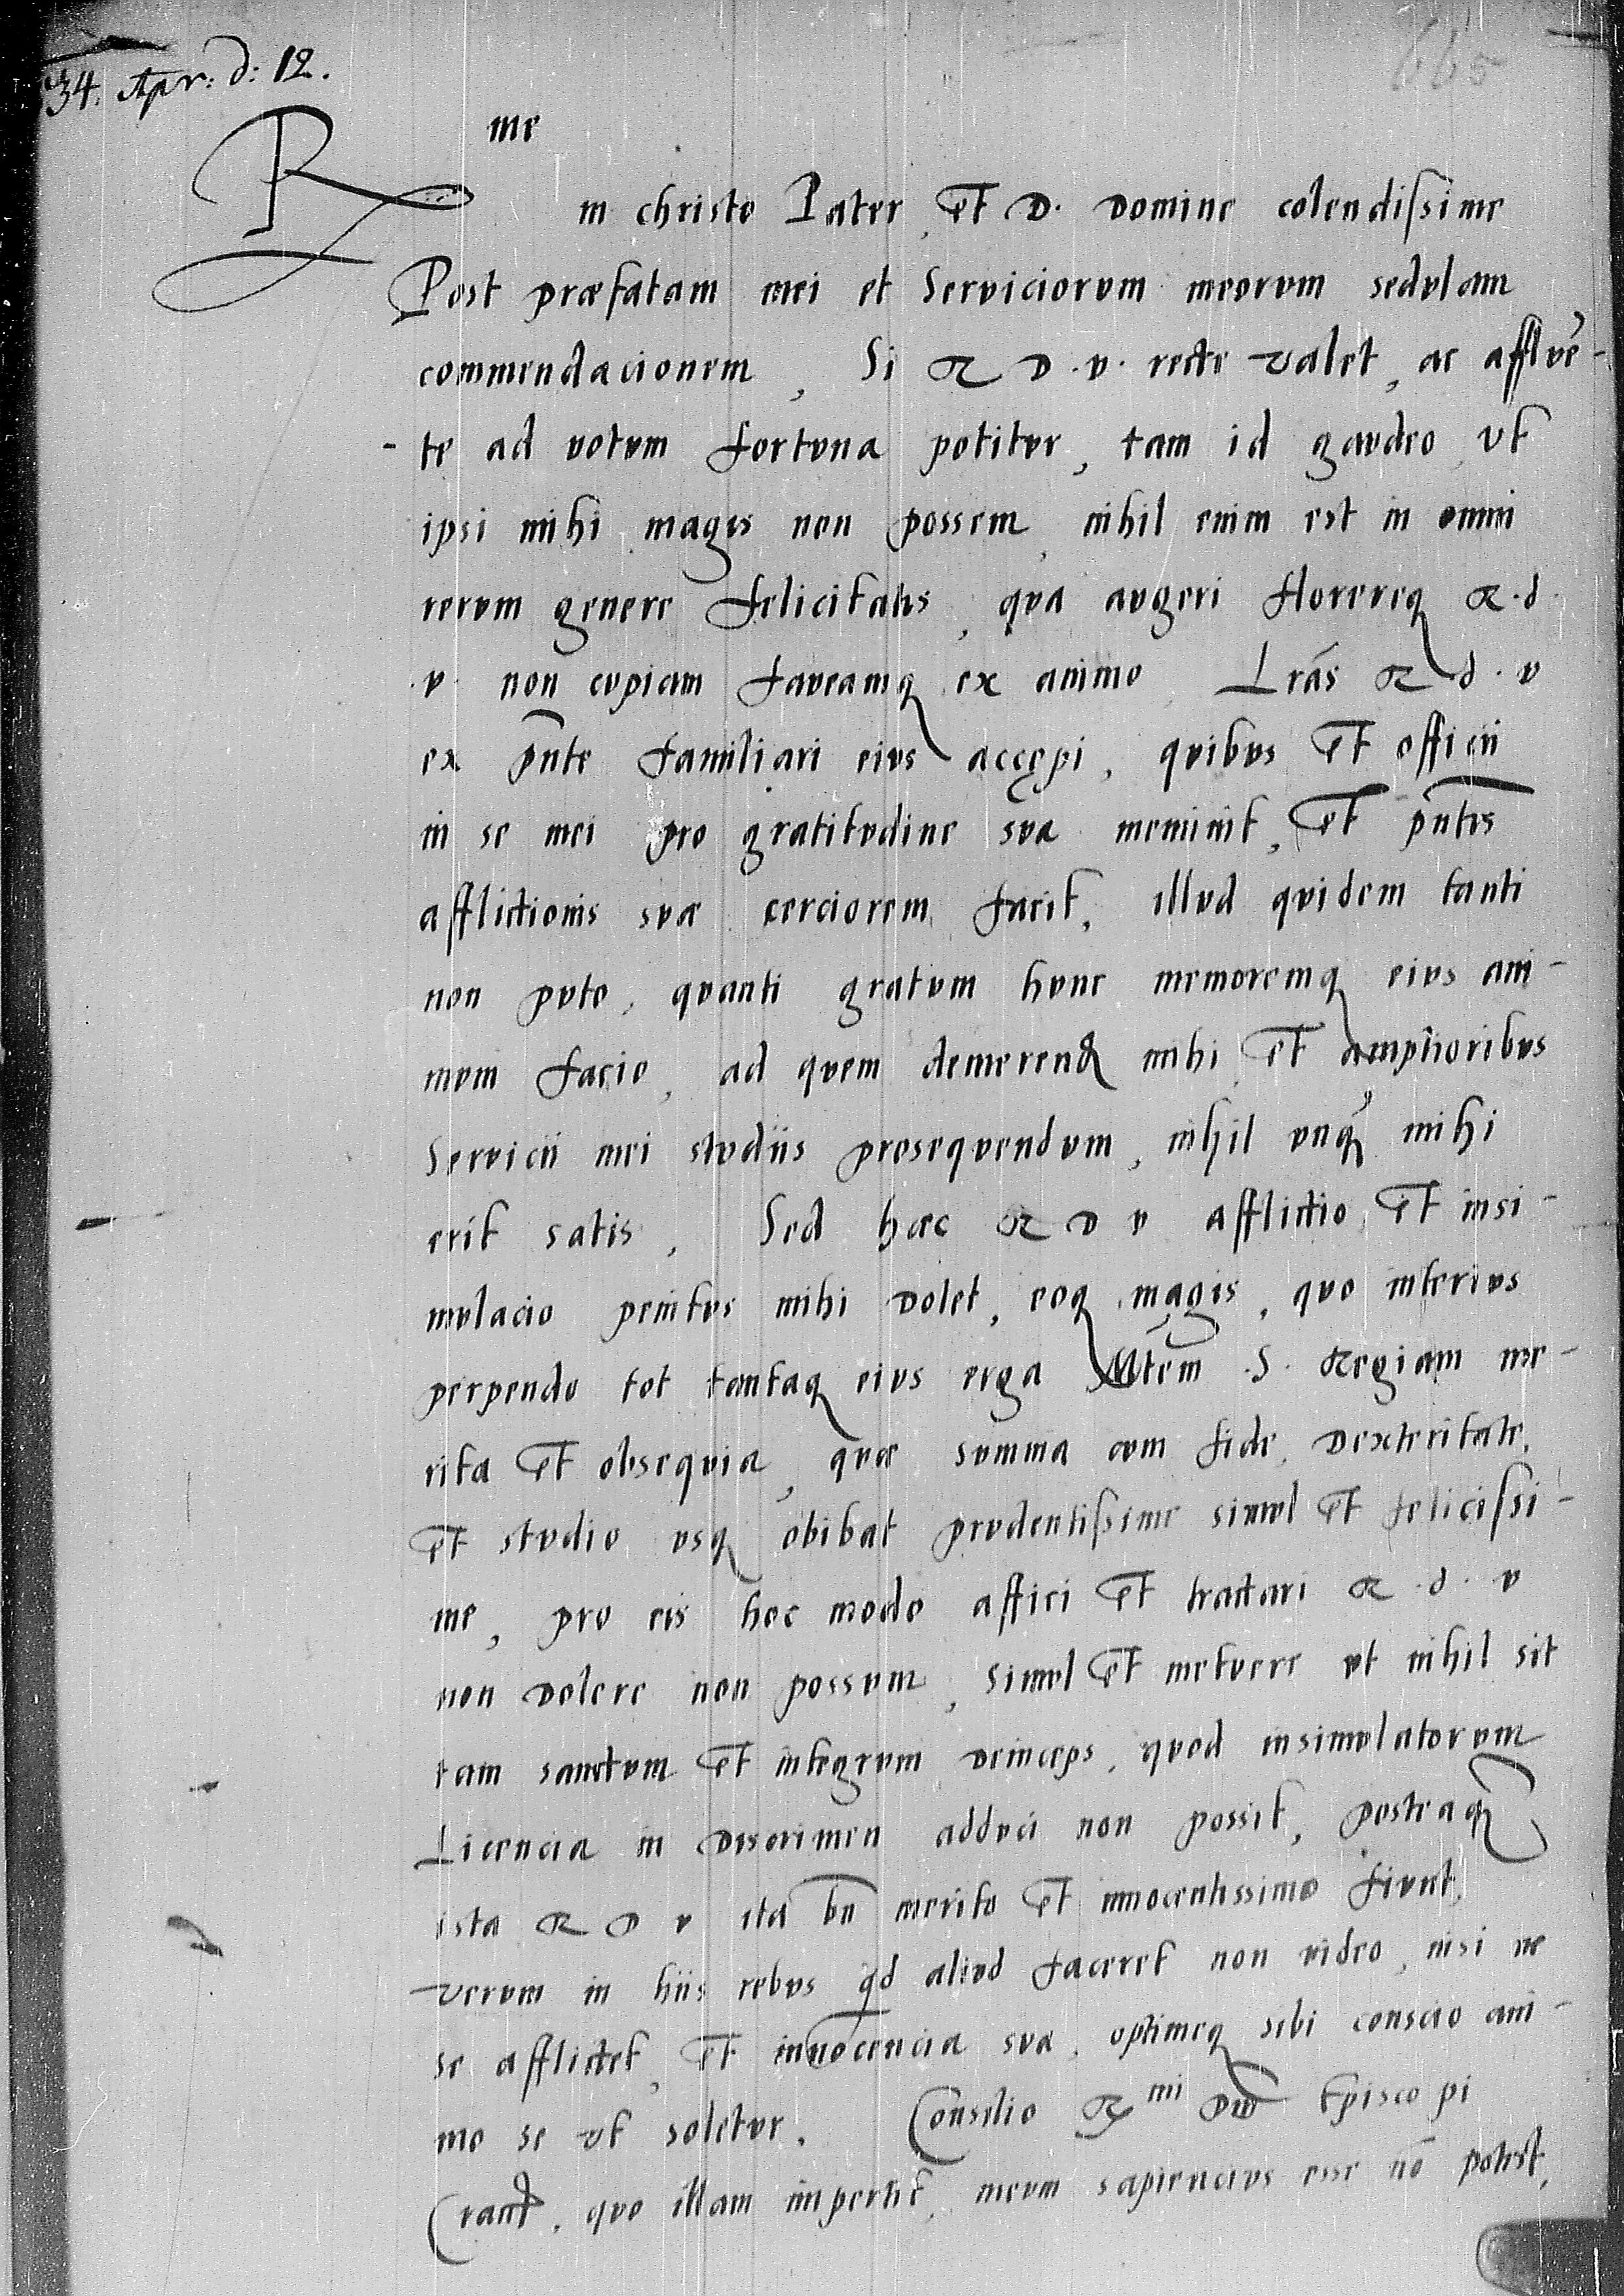 34. Apr: d: 12.
665
R me
in christo Pater, et D. Domine colendissime
Post præfatam mei et Serviciorum meorum sedulam
commendacionem, Si R D. v. recte valet, ac affluē-
-te ad votum fortuna potitur, tam id gaudeo, ut
ipsi mihi magis non possem, nihil enim est in omni
rerum genere felicitatis, qua augeri florereq R. d.
v. non cupiam faveamq ex animo Lrás R d. v
ex pn̄te familiari eius accępi, quibus et officii
in se mei pro gratitudine sua meminit, et pn̄tis
afflictionis suæ cerciorem facit, illud quidem tanti
non puto, quanti gratum hunc memoremq eius ani-
mum facio, ad quem demerend mihi, et amplioribus
Servicii mei studiis prosequendum, nihil unq̄ mihi
erit satis, Sed hæc R D v afflictio, et insi-
mulacio penitus mihi dolet, eoq magis, quo interius
perpendo tot tantaq eius erga Mtēm .S. Regiam me-
rita et obsequia, quæ summa cum fide, dexteritate,
et studio usq obibat prudentissime simul et felicissi-
me, pro eis hoc modo affici et tractari R. d. v
non dolere non possum, simul et metuere ut nihil sit
tam sanctum et integrum deinceps, quod insimulatorum
Licencia in discrimen adduci non possit, posteaq̄
ista R D v ita bn̄ merito et innocentissimo fiunt,
verum in hiis rebus qd aliud faceret non video, nisi ne
se afflictet, et innocencia sua, optimeq sibi conscio ani-
mo se ut soletur. Consilio Rmi Dni Episcopi
Cran, quo illam impertit, meum sapiencius esse nō potest,